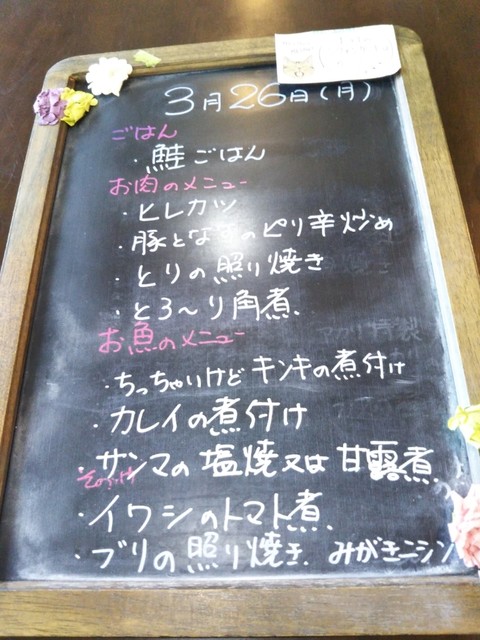 3月26日(月)
ごはん
・鮭ごはん
お肉のメニュー
・ヒレカツ
・豚となすのピリ辛炒め
・とりの照り焼き
・とろ〜り角煮.
お魚のメニュー
・ちっちゃいけどキンキの煮付け
・カレイの煮付け
・サンマの塩焼又は甘露煮.
・イワシのトマト煮.
・ブリの照り焼き. みがきニシン